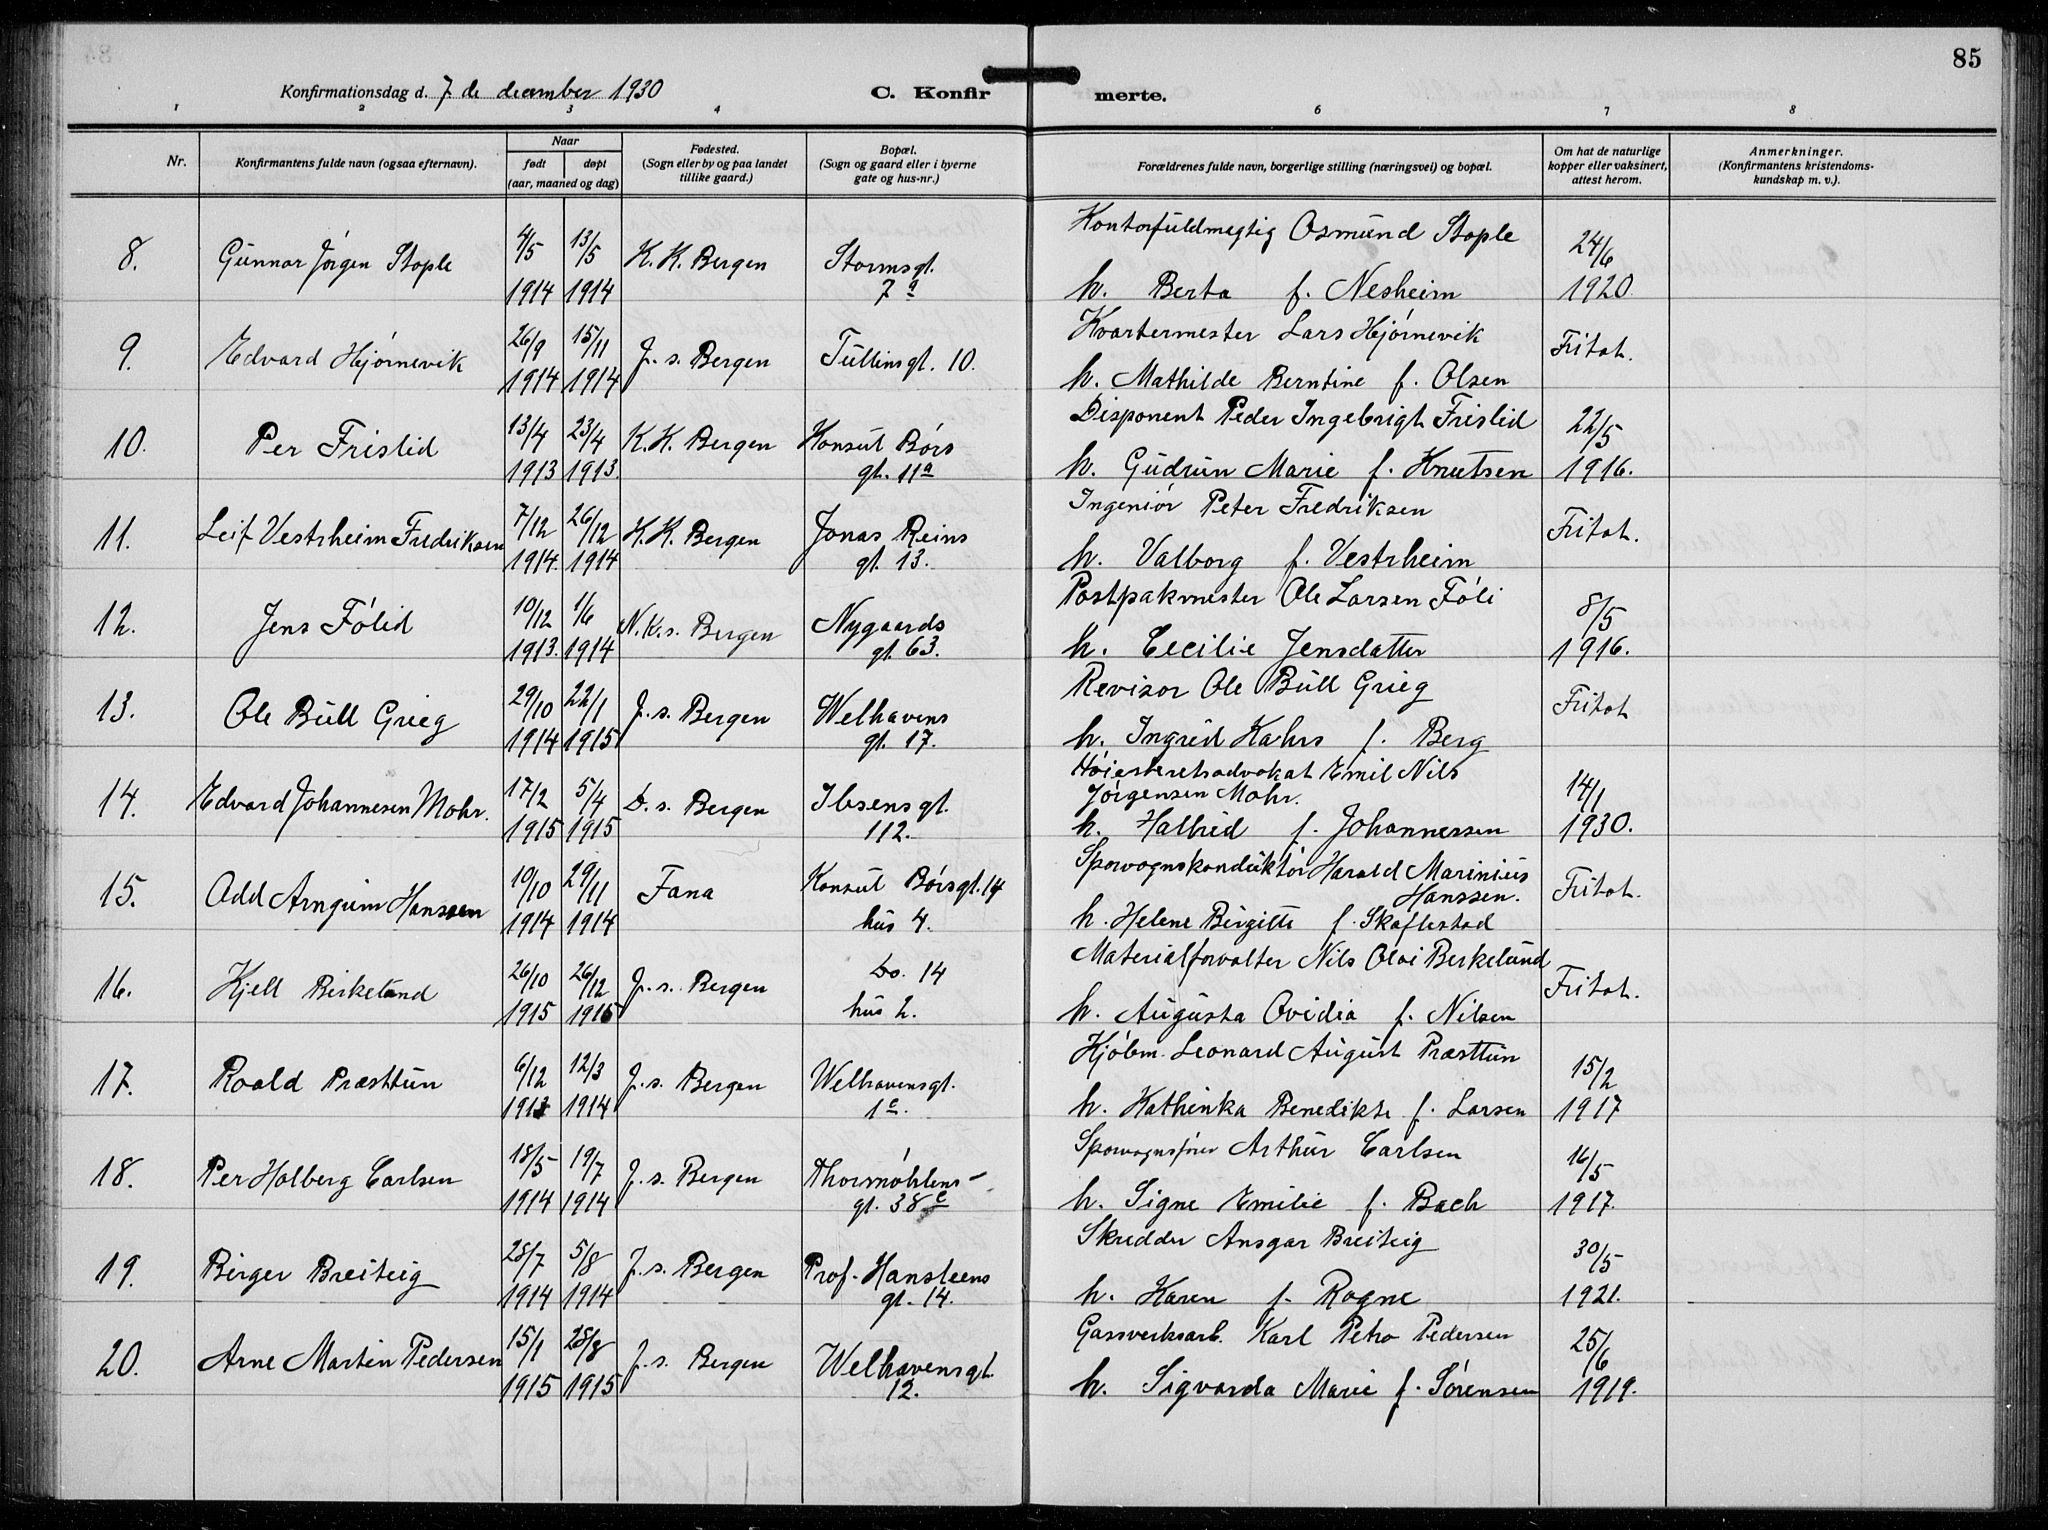 85
Konfirmationsdag d. 7 de december 1930 C. Konfir merte.
1 2 3 4 5 6 7 8
Nr. Konfirmantens fulde navn (ogsaa efternavn). Naar født døpt (aar, maaned og dag) Fødested. (Sogn eller by og paa landet tillike gaard.) Bopæl. (Sogn og gaard eller i byerne gate og hus-nr.) Forældrenes fulde navn, borgerlige stilling (næringsvei) og bopæl. Om hat de naturlige kopper eller vaksinert, attest herom. Anmerkninger. (Konfirmantens kristendoms-kundskap m. v.).
8. Gunnar Jörgen Stople 4/5 1914 13/5 1914 K. K. Bergen Stormsgt. 7 a Kontorfuldmegtig Osmund Stople 24/6
h. Berta f. Nesheim 1920.
9. Edvard Hjørnevik 26/9 1914 15/11 1914 J. s. Bergen Tullinsgt. 10. Kvartermester Lars Hjørnevik Fritat.
h. Mathilde Berntine f. Olsen
10. Per Frislid 13/4 1913 23/4 1913. K.K. Bergen Konsul Börs gt. 11a Disponent Peder Ingebrigt Frislid 22/5
h. Gudrun Marie f. Knutsen 1916.
11. Leif Vestrheim Fredriksen 7/12 1914. 26/12 1914 K.K. Bergen Jonas Reins gt. 13. Ingeniör Peter Fredriksen Fritat.
h. Valborg f. Vestrheim
12. Jens Fölid 10/12 1913. 1/6 1914 N.K.s. Bergen Nygaards gt. 63. Postpakmester Ole Larsen Föli 8/5
h. Cecilie Jensdatter 1916.
13. Ole Bull Grieg 29/10 1914 22/1 1915 J. s. Bergen Welhavens gt. 17. Revisor Ole Bull Grieg Fritat
h. Ingrid Kahrs f. Berg
14. Edvard Johannesen Mohr. 17/2 1915 5/4 1915 D. s. Bergen Ibsensgt. 112. Höiesteretsadvokat Emil Nils
Jörgensen Mohr. 14/1
h. Halbrid f. Johannessen 1930.
15. Odd Arngrim Hanssen 19/10 1914 29/11 1914 Fana Konsul Börsgt. 14 hus 4. Sporvognskonduktör Harald Marinius
Hanssen. Fritat.
h. Helene Birgitte f. Skaflestad
16. Kjell Birkelund 26/10 1915 26/12 1915 J. s. Bergen Do. 14 hus 2. Materialforvalter Nils Olai Berkelund Fritat.
h. Augusta Ovidia f. Nilsen
17. Roald Præsttun 6/12 1913 12/3 1914 J. s. Bergen Welhavensgt. 1c. Kjöbm. Leonard August Præsttun 15/2
h. Kathinka Benedikte f. Larsen 1917
18. Per Holberg Carlsen 18/5 1914 19/7 1914 J. s. Bergen Thormöhlens- gt. 38c Sporvognsförer Arthur Carlsen 16/5
h. Signe Emilie f. Bach 1917.
19. Birger Breiteig 28/7 1914 5/8 1914 J. s. Bergen Prof. Hansteens gt. 14. Skredder Ansgar Breiteig 30/5
h. Karen f. Rogne 1921.
20. Arne Martin Pedersen 15/1 1915 28/8 1915 J. s. Bergen Welhavensgt. 12. Gassverksarb. Karl Petro Pedersen 25/6
h. Sigvarda Marie f. Sörensen 1919.